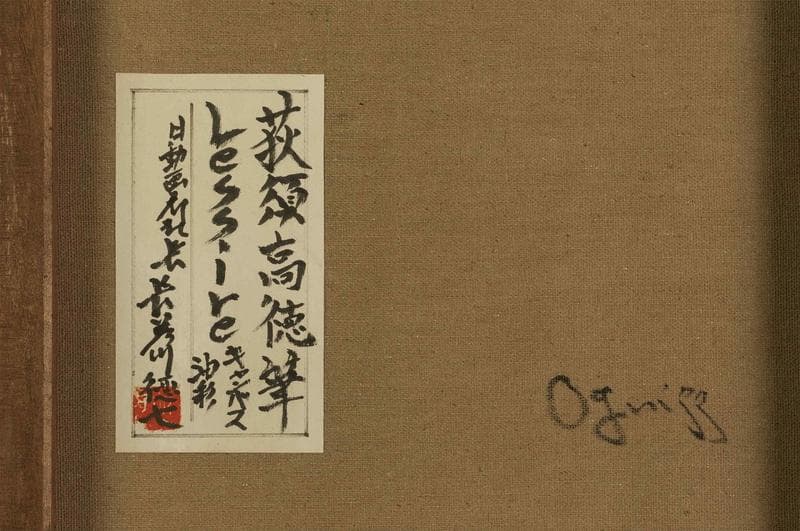 荻須高徳筆
Lessire
キャンバス
油彩
日動画廊社長
長谷川徳七
Oguiss